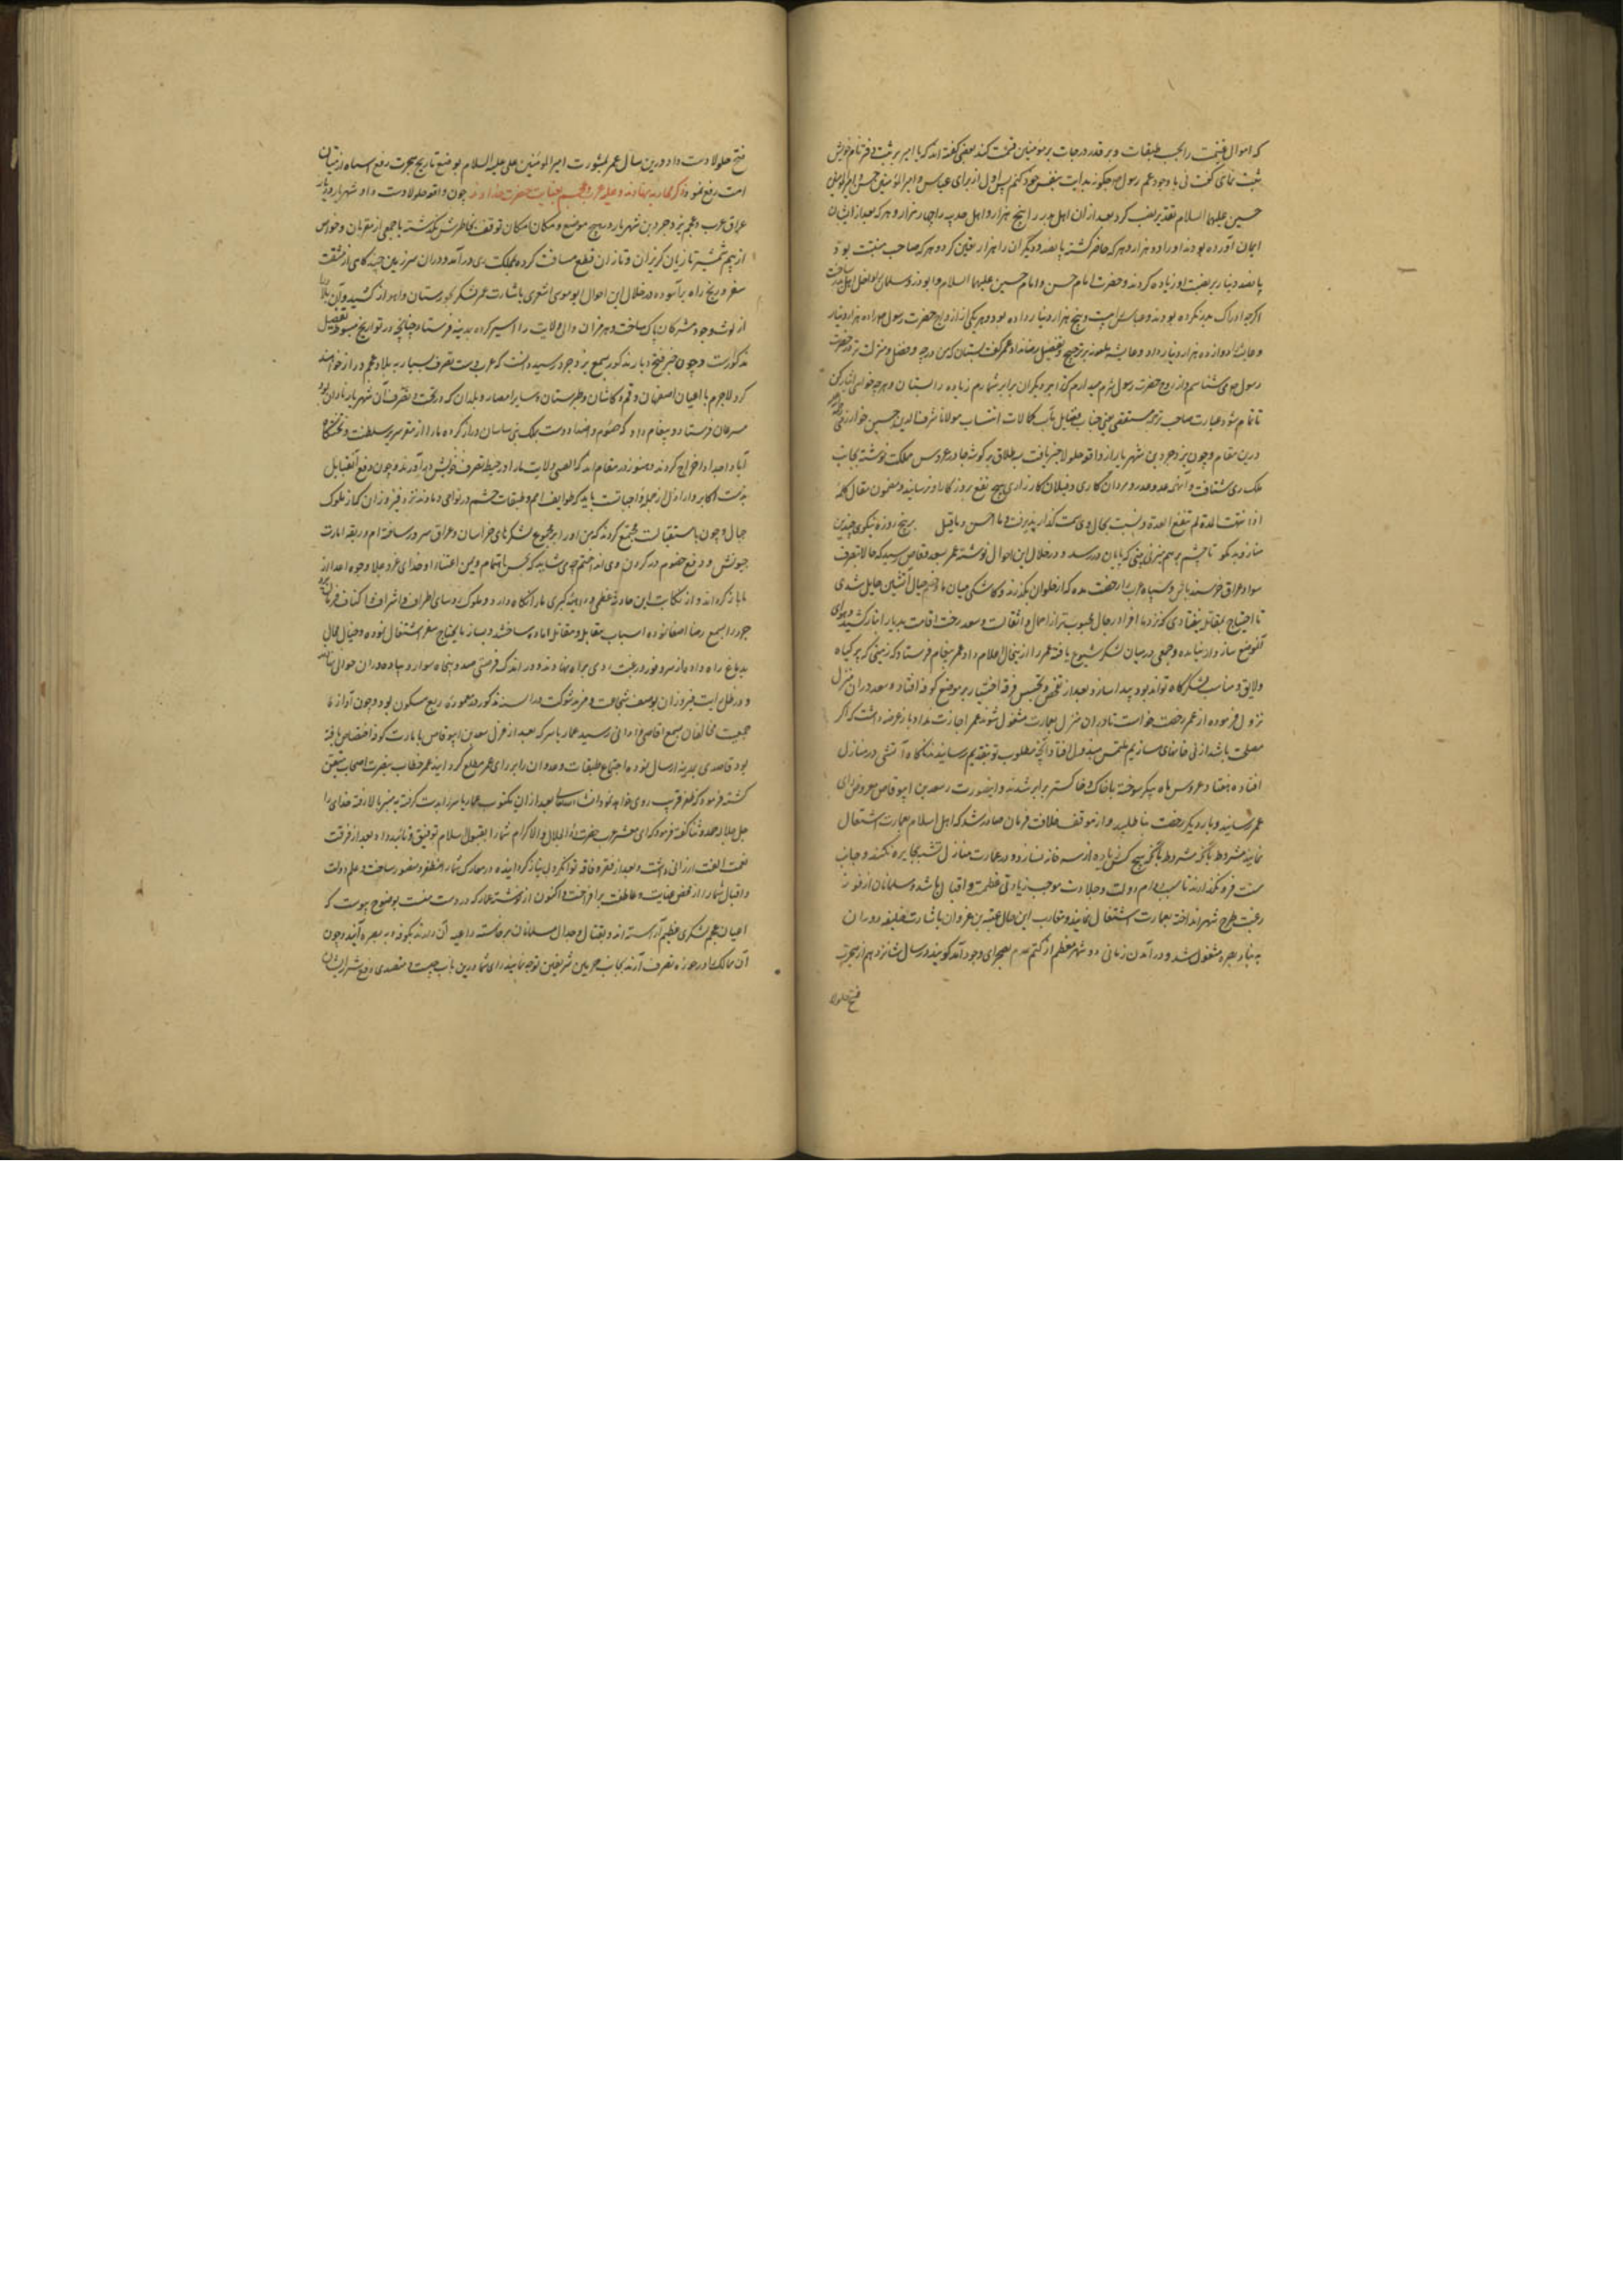 که اموال غنیمت را بحسب طبقات و بر قدر درجات بر مومنین قسمت کند بعضی گفته اند که با امیر بر ثبت دفتر نام خویش
ثبت نمای گفت نی با وجود عم رسول چگونه بدایت بنفس خود کنم پس اول از برای عباس و امیر المومنین حسن و امیر المومنین
حسین علیهما السلام تقدیر نصیب کرد بعد از ان اهل بدر را پنج هزار و اهل حدیبیه را چهار هزار و هر که بعد از ایشان
ایمان آورده بودند او را ده هزار و هر که حاضر گشته پانصد و دیگران را هزار تعیین کرد و هر که صاحب منقبت بود
پانصد دینار بر نصیب او زیاده کردند و حضرت امام حسن و امام حسین علیهما السلام و ابوذر و سلمان را داخل اهل بدر ساخت
اگرچه ادراک بدر نکرده بودند و عباس را بیست و پنج هزار دینار داده بود و هر یکی از ازواج حضرت رسول را ده هزار دینار
و عایشه را دوازده هزار دینار داد و عایشه بر ترجیح و تفضیل رضا نداد عمر گفت بستان که من درجه و فضل و منزلت تو در حضرت
رسول می شناسم و از روح حضرت رسول شرم میدارم که ترا بر دیگران برابر شمارم زیاده را بستان و هر چه خواهی ایثار کن
تا تمام شود عبارت صاحب ترجمه مستقصی یعنی جناب فضایل مآب کمالات انتساب مولانا شرف الدین حسین خوارزمی
درین مقام و چون یزدجرد بن شهریار از واقعه جلولا خبر یافت سه طلاق بر گوشه چادر عروس مملکت نوشته بجانب
ملک ری شتافت و آنهمه عدد و مردان کاری و فیلان کارزاری هیچ نفع بروزگار او نرسانید و مضمون مقال کلمه
اذا انقضت المدة لم تنفع العدة و نسبت بحال وی سمت گذارش پذیرفت و ما احسن ما قیل پنج روزه نیکوی چندین
مناز و بد مگو تا چشم بر هم میزنی بینی که پایان در رسد و در خلال این احوال نوشته عمر بسعد وقاص رسید که حالا بتصرف
سواد عراق خرسند باش و سپاه عرب را رخصت مده که از حلوان بگذرند و کاشکی میان ما و عجم جبال آتشین حایل شدی
تا احتیاج بمقاتله نیفتادی که نزد ما افراد رجال محبوبتر از اموال و اثقالست و سعد رخت اقامت بدیار انبار کشید و هوای
آنموضع سازوار نیامده و حمی در میان لشکر شیوع یافته عمر را از ینحال اعلام داد عمر پیغام فرستاد که زمینی که پر گیاه
و لایق و مناسب لشکرگاه تواند بود پیدا سازد بعد از تفحص و تجسس قرعه اختیار بر موضع کوفه افتاد و سعد در ان منزل
نزول فرموده از عمر رخصت خواست تا در ان منزل بعمارت مشغول شوند عمر اجازت نداد باز عرضه داشت که اگر
مصلحت باشد از نی خانهای سازیم ملتمس مبذول افتاد آنچه مطلوب بود بتقدیم رسانیدند ناگاه آتشی در منازل
افتاده هفتاد عروس ماه پیکر سوخته با خاک و خاکستر برابر شدند و اینصورت را سعد بن ابی وقاص معروض رای
عمر رسانید و بار دیگر رخصت بنا طلبید و از موقف خلافت فرمان صادر شد که اهل اسلام بعمارت اشتغال
نمایند مشروط بآنکه هیچ کس زیاده از سه خانه نسازد و در عمارت منازل تشبه بجبابره نکنند و جانب
سنت فرو نگذارند تا سبب دوام دولت و جلادت موجب زیادتی عظمت و اقبال باشد و مسلمانان از فور
رغبت طرح شهر انداخته بعمارت اشتغال نمایند و مقارب این حال عتبه بن غزوان باشارت خلیفه دوران
به بناء بصره مشغول شد و در آمدن زمانی دو شهر معظم از کتم عدم بصحرای وجود آمد گویند در سال شانزدهم از هجرت
فتح جلولا
فتح جلولا دست داد و درین سال عمر بمشورت امیر المومنین علی علیه السلام بوضع تاریخ هجرت رفع اشتباه از میان
امت رفع نمود ذکر محاربه نهاوند و غلبه عرب بر عجم بعنایت حضرت خداوند چون واقعه جلولا دست داد و شهریار دیار
عراق عرب و عجم یزدجرد بن شهریار در هیچ موضع و مکان امکان توقف بخاطرش نگذشته با جمعی از مقربان و خواص
از بیم شمشیر تازیان گریزان و تازان قطع مسافت کرده بملکت ری در آمد و در ان سرزمین چند گاهی از مشقت
سفر و رنج راه برآسوده در خلال این احوال ابو موسی اشعری باشارت عمر لشکر بخوزستان و اهواز کشید و آن بلاد را
از لوث وجود مشرکان پاک ساخت و هرمزان والی ولایت را اسیر کرده بمدینه فرستاد چنانچه در تواریخ مبسوط بتفصیل
مذکورست و چون خبر فتح دیار مذکور بسمع یزدجرد رسید دانست که عرب دست تصرف بسیار به بلاد عجم دراز خواهند
کرد لاجرم باعیان اصفهان و قم و کاشان و طبرستان و سایر امصار و بلدان که در تحت تصرف آن شهریار نادان بود
مسرعان فرستاد و پیغام داد که خصوم و اضداد دست بملک بنی ساسان دراز کرده ما را از مقر سریر سلطنت و تختگاه
آباء و اجداد اخراج کردند و هنوز در مقام اند که اقصی ولایت ما را در حیطه تصرف خویش در آورند و چون دفع آنقبایل
بر ذمت اکابر و اراذل از جمله واجبات باید که طوایف امم و طبقات حشم در نواحی دماوند نزد فیروزان که از ملوک
جبال و چون باستقبالت مجتمع گردند که من او را بر مجموع لشکرهای خراسان و عراق سرور ساخته ام و ربقه امارت
جیوش و دفع خصوم در گردن وی انداختم چه می شاید که بحسن اهتمام و یمن اعتضاد او خدای عز و علا وجوه اعدا از
ما باز گرداند و از نکایت این حادثه عظمی و داهیه کبری ما را نگاه دارد و ملوک و روسای اطراف و اشراف و اکناف فرمان یزد
جرد را بسمع رضا اصغا نموده اسباب مقابل و مقاتل آماده ساختند و بساز ما یحتاج سفر اشتغال نموده و خیال محال
بدماغ راه داده از سر وفور رغبت روی براه نهادند و در اندک فرصتی صد و پنجاه سوار و پیاده در ان حوالی
و در ظل رایت فیروزان بوصف شجاعت و مزید شوکت در السنه مذکور و در معموره ربع مسکون بود و چون آوازه
جمعیت مخالفان بسمع اقاصی و ادانی رسید عمار یاسر که بعد از عزل سعد بن ابی وقاص بامارت کوفه اختصاص یافته
بود قاصدی بمدینه ارسال نموده اجتماع طبقات و عدوان را بر رای عمر مطلع گردانید عمر خطاب بنصرت اصحاب متیقن
گشته فرمود که ظفر قریب روی خواهد نمود انشاء الله تعالی بعد از ان مکتوب عمار یاسر را بدست گرفته بمنبر بالا رفته خدای را
جل جلاله حمد و ثنا گفته فرمود که ای معشر عرب حضرت ذو الجلال و الاکرام شما را بقبول اسلام توفیق و تائید داد بعد از فرقت
نعمت الفت ارزانی داشت و بعد از فقر و فاقه توانگر و بی نیاز گردانیده در معارک شما را مظفر و منصور ساخت و علم دولت
و اقبال شما را از محض عنایت و عاطفت برافراخت و اکنون از نوشته عمار که دوست منست بوضوح پیوست که
اعیان عجم لشکری عظیم آراسته اند و بقتال و جدال مسلمانان برخاسته داعیه آن دارند بکوفه و به بصره آیند و چون
آن ممالک را در حوزه تصرف آرند بجانب حرمین شریفین توجه نمایند رای شما درین باب چیست و متصدی دفع شر ایشان